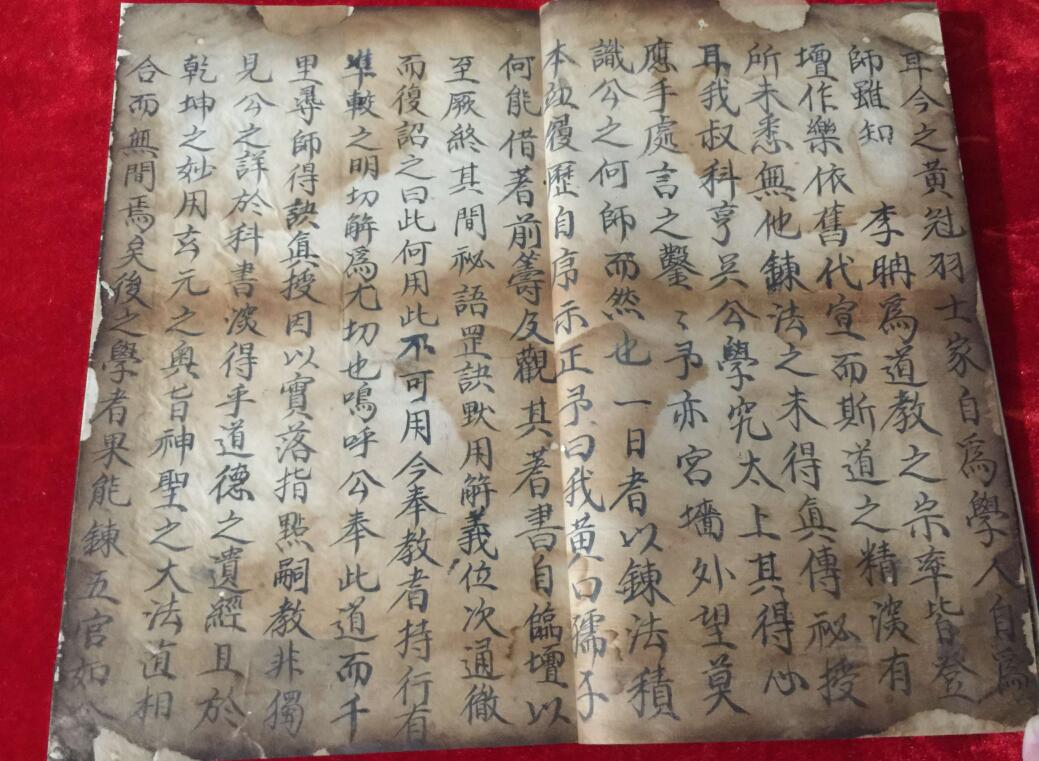 耳今之黃冠羽士家自為學人自為
師雖知 李聃為道教之宗率皆登
壇作樂依舊代宣而斯道之精深有
所未悉無他鍊法之未得真傳祕授
耳我叔科亨吳公學究太上其得心
應手處言之鑿〻予亦宮墻外望莫
識公之何師而然也一日者以鍊法積
本並履歷自序示正予曰我黃口孺子
何能借著前籌及觀其著書自臨壇以
至厥終其間祕語罡訣默用解義位次通徹
而復詔之曰此何用此不可用今奉教者持行有
準較之明切解為尤切也嗚呼公奉此道而千
里尋師得訣真授因以實落指點嗣教非獨
見公之詳於科書深得乎道德之遺經且於
乾坤之妙用玄元之奧旨神聖之大法直相
合而無間焉矣後之學者果能鍊五官如